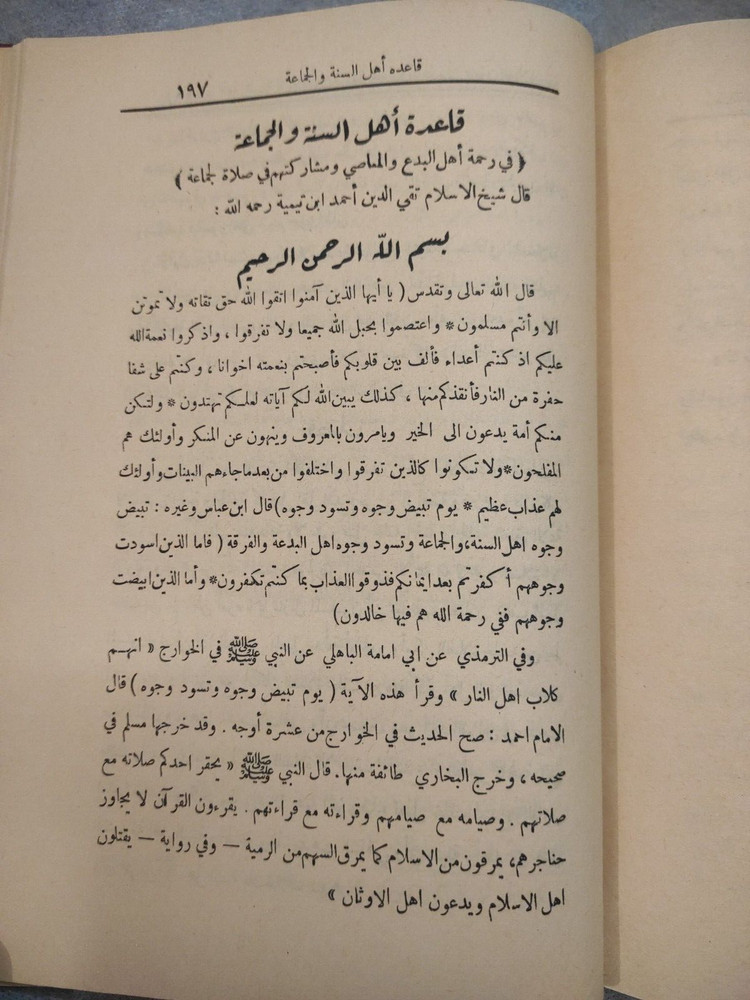 قاعده أهل السنة والجماعة ١٩٧
قاعدة أهل السنة والجماعة
( في رحمة أهل البدع والمعاصي ومشاركتهم في صلاة لجماعة )
قال شيخ الاسلام تقي الدين أحمد ابن تيمية رحمه الله :
بسم الله الرحمن الرحيم
قال الله تعالى وتقدس ( يا أيها الذين آمنوا اتقوا الله حق تقاته ولا تموتن
الا وأنتم مسلمون * واعتصموا بحبل الله جميعا ولا تفرقوا ، واذكروا نعمة الله
عليكم اذ كنتم أعداء فألف بين قلوبكم فأصبحتم بنعمته اخوانا ، وكنتم على شفا
حفرة من النار فأنقذكم منها ، كذلك يبين الله لكم آياته لعلكم تهتدون * ولتكن
منكم أمة يدعون الى الخير ويامرون بالمعروف وينهون عن المنكر وأولئك هم
المفلحون * ولا تكونوا كالذين تفرقوا واختلفوا من بعد ماجاءهم البينات وأولئك
لهم عذاب عظيم * يوم تبيض وجوه وتسود وجوه ) قال ابن عباس وغيره : تبيض
وجوه اهل السنة، والجماعة وتسود وجوه اهل البدعة والفرقة ( فاما الذين اسودت
وجوههم أ كفرتم بعد ايمانكم فذوقوا العذاب بما كنتم تكفرون * وأما الذين ابيضت
وجوههم ففي رحمة الله هم فيها خالدون)
وفي الترمذي عن ابي امامة الباهلي عن النبي ﷺ في الخوارج « انهم
كلاب اهل النار » وقرأ هذه الآية ( يوم تبيض وجوه وتسود وجوه ) قال
الامام احمد : صح الحديث في الخوارج من عشرة أوجه . وقد خرجها مسلم في
صحيحه ، وخرج البخاري طائفة منها . قال النبي ﷺ « يحقر احدكم صلاته مع
صلاتهم . وصيامه مع صيامهم وقراءته مع قراءتهم . يقرءون القرآن لا يجاوز
حناجرهم، يمرقون من الاسلام كما يمرق السهم من الرمية — وفي رواية — يقتلون
اهل الاسلام ويدعون اهل الاوثان »